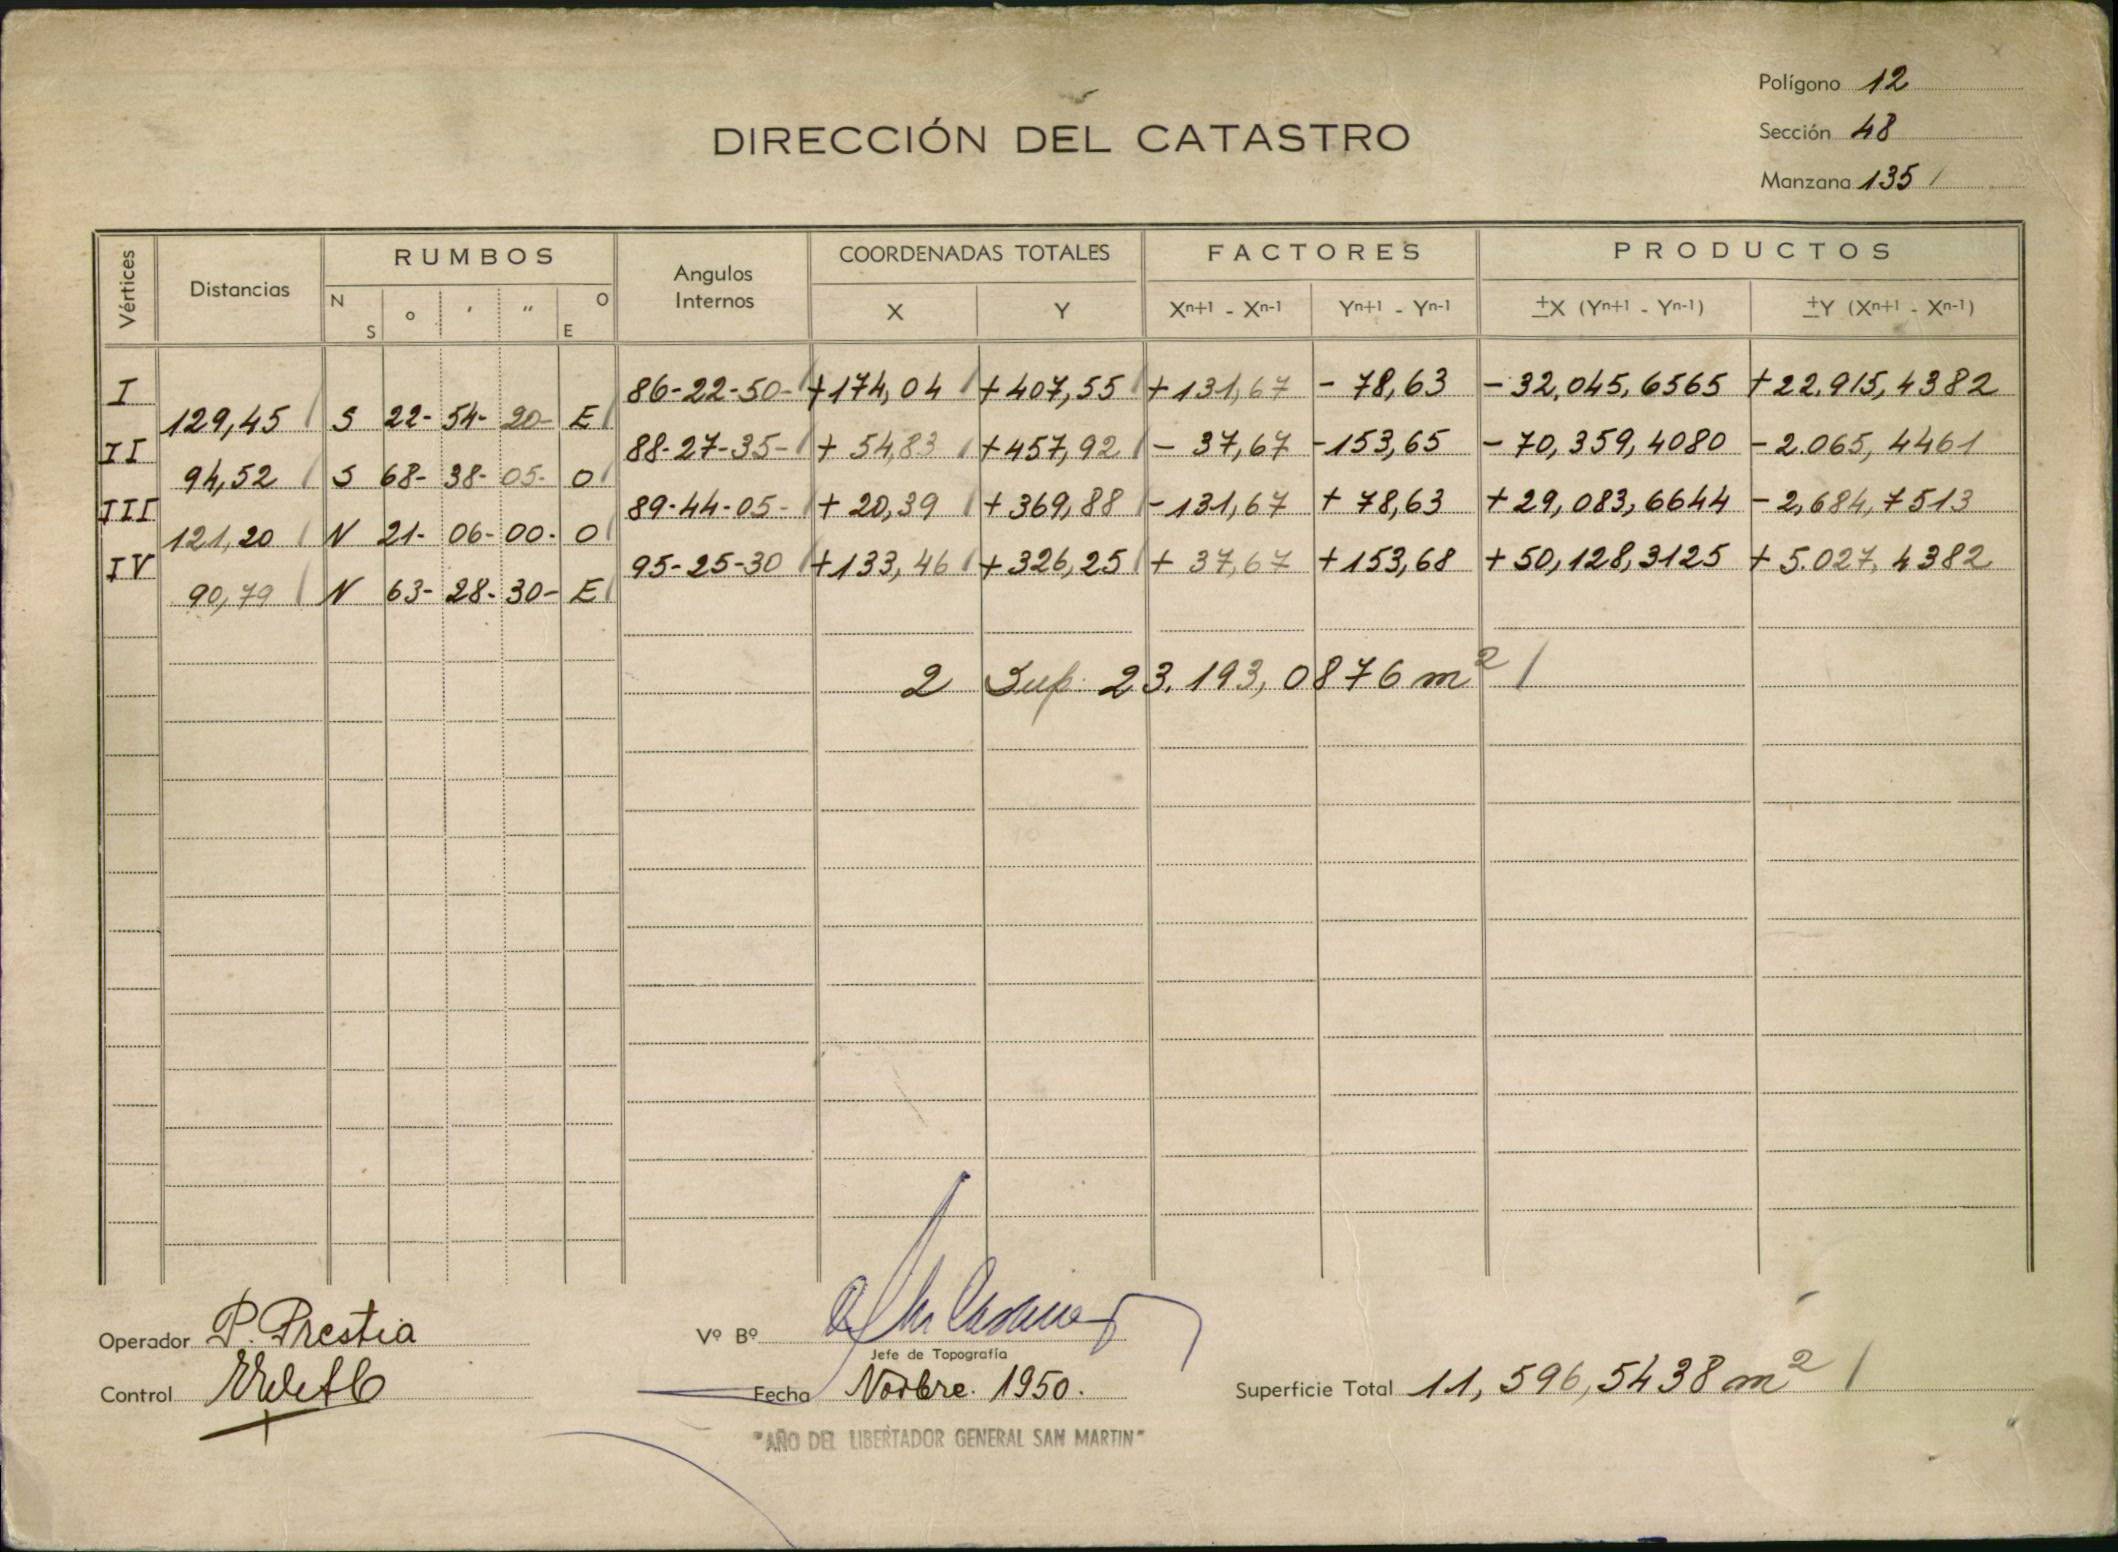 Polígono 12
DIRECCIÓN DEL CATASTRO
Sección 48
Manzana 135
Vértices Distancias RUMBOS Angulos Internos COORDENADAS TOTALES FACTORES PRODUCTOS
N S ° ′ ″ O E X Y Xn+1 - Xn-1 Yn+1 - Yn-1 ±X (Yn+1 - Yn-1) ±Y (Xn+1 - Xn-1)
I 86-22-50- +174,04 +407,55 +131,67 - 78,63 -32.045,6565 +22.915,4382
129,45 S 22- 54- 20- E
II 88-27-35- + 54,83 +457,92 - 37,67 -153,65 -70,359,4080 -2.065,4461
94,52 S 68- 38- 05- O
III 89-44-05- + 20,39 +369,88 -131,67 + 78,63 +29,083,6644 -2,684,7513
121,20 N 21- 06- 00- O
IV 95-25-30 +133,46 +326,25 + 37,67 +153,68 +50,128,3125 +5.027,4382
90,79 N 63- 28- 30- E
2 Sup. 23.193,0876 m²
Operador P. Prestia
Vº Bº
Jefe de Topografía
Control
Fecha Novbre. 1950.
Superficie Total 11,596,5438 m²
"AÑO DEL LIBERTADOR GENERAL SAN MARTIN"